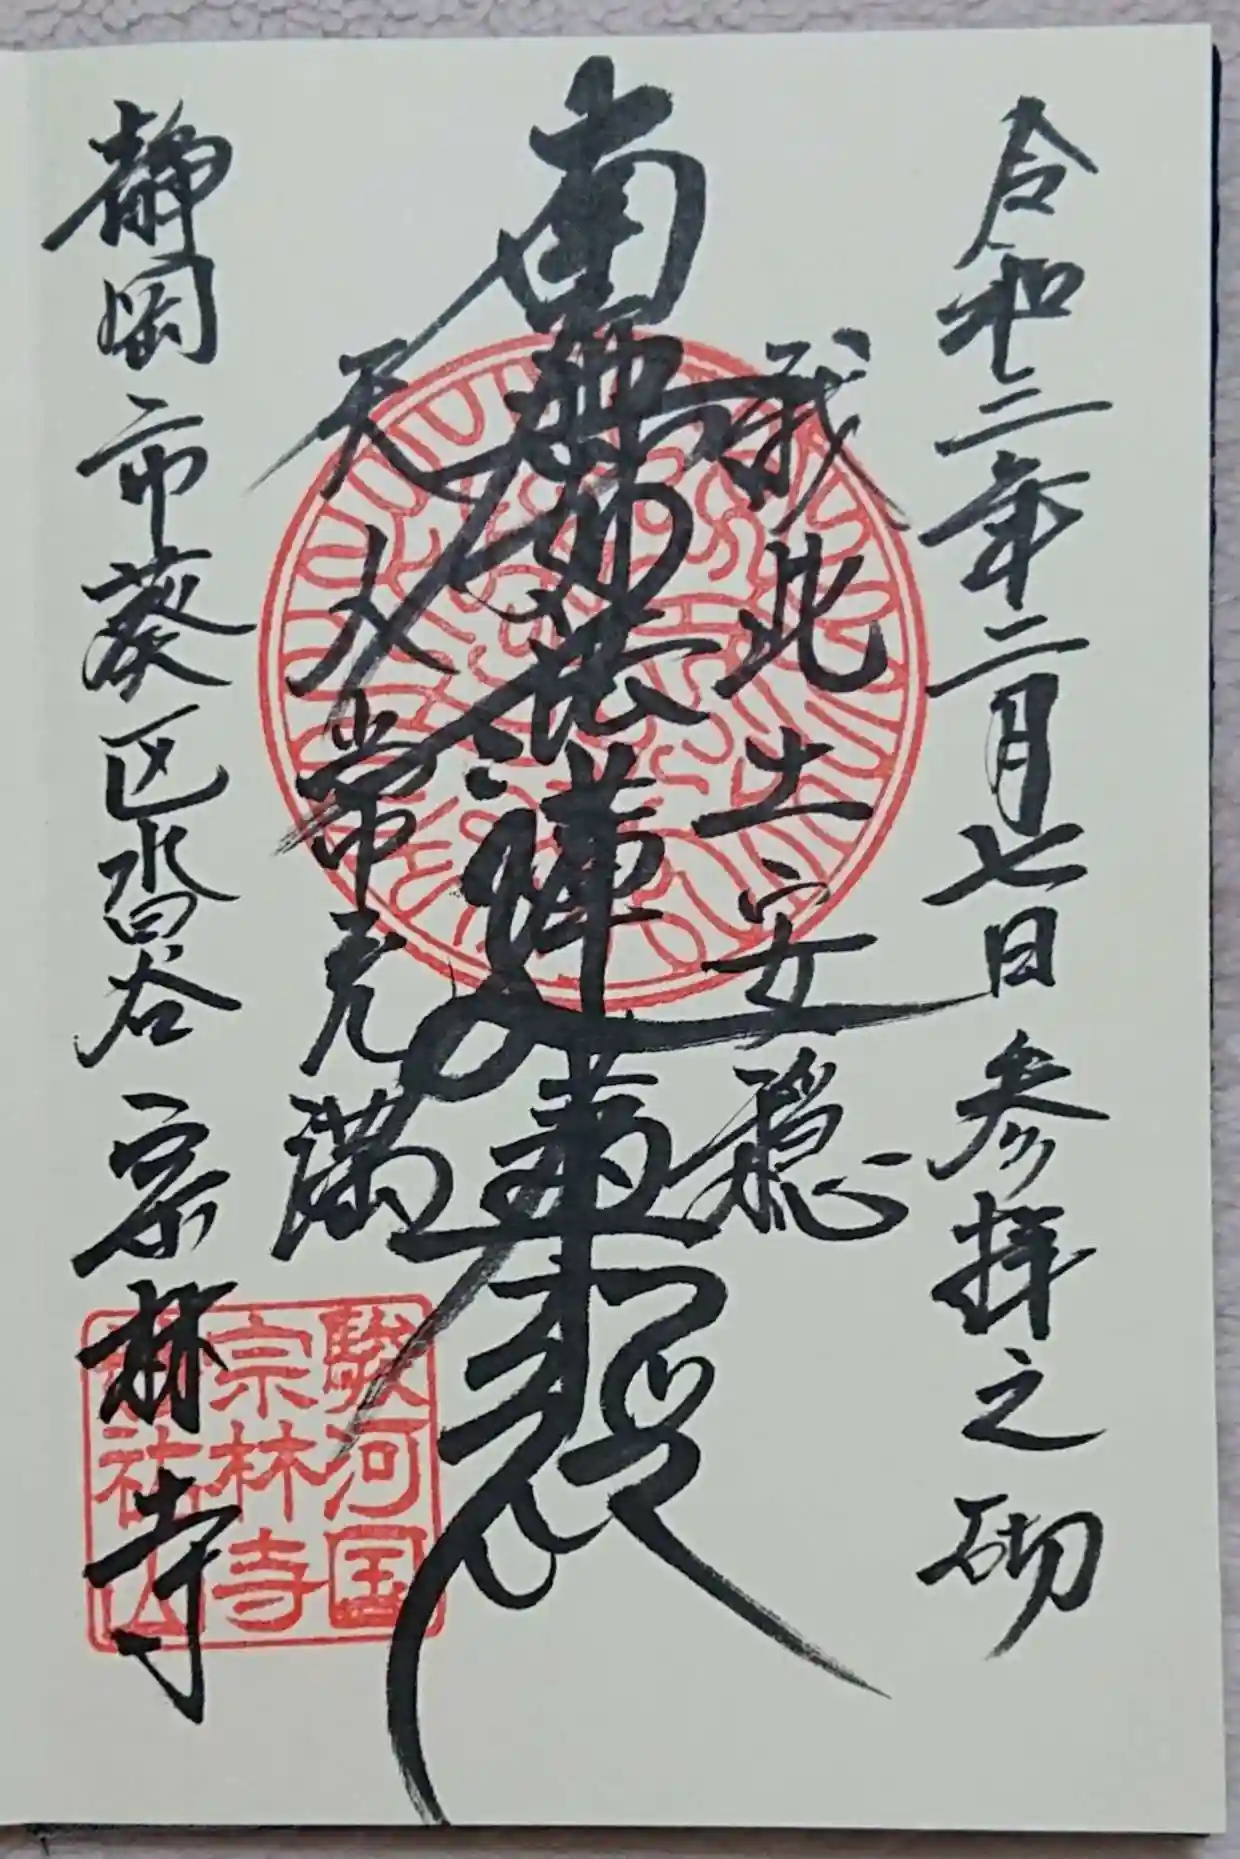 令和三年二月七日 参拝之砌
我此土安穏
南無妙法蓮華経
天人常充満
静岡市葵区沓谷 宗林寺
駿河国
宗林寺
祐山